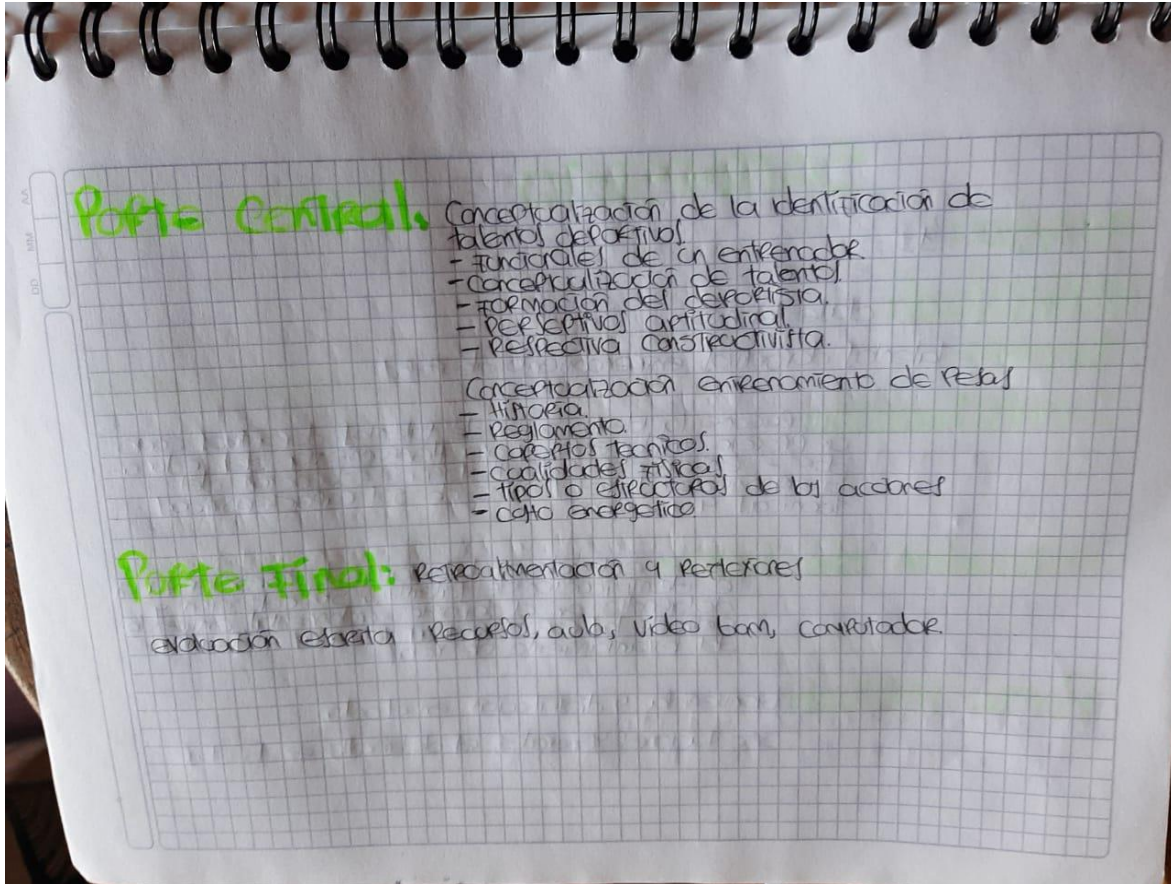 Parte Central. Conceptualización de la identificación de
talentos deportivos
- Funcionales de un entrenador
- Conceptualización de talentos.
- Formación del deportista.
- Perseptivos aptitudinal
- Respectiva constructivista.
Conceptualización entrenamiento de Pesas
- Historia.
- Reglamento.
- tecnicos.
- cualidades Fisicas
- tipos o estructuras de las acciones
- costo energetico
Parte Final: Retroalimentación y Reflexiones
evaluación escrita Recursos, aula, video bam, computador.
AA
MM
DD